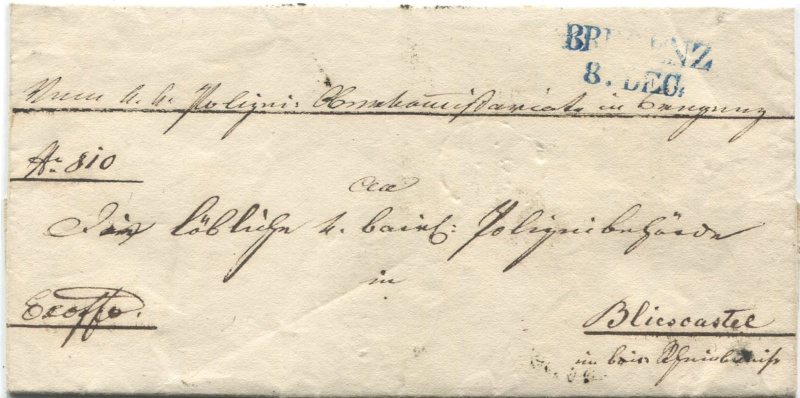 BREGENZ
8. DEC.
Vom k. k. Polizei: Oberkommissariate in Bregenz
No. 810
An
Die löbliche k. bairs: Polizeibehörde
in
Exoffo.
Bliescastel
im bair. Rheinkreise